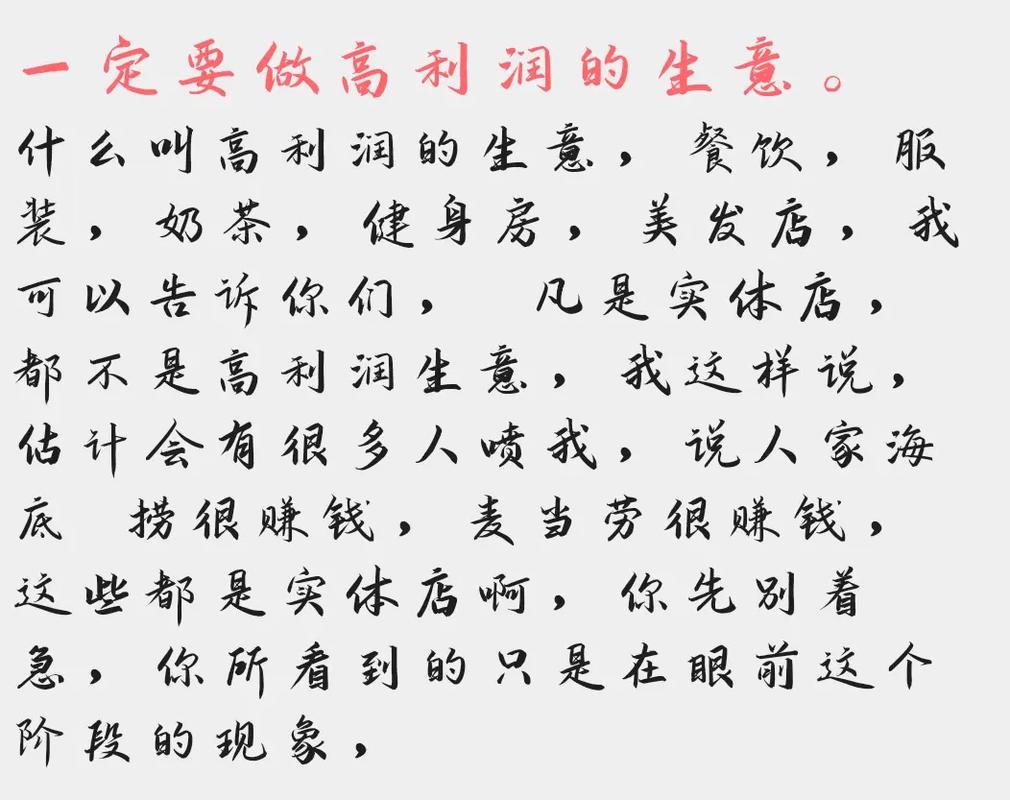 一定要做高利润的生意。
什么叫高利润的生意，餐饮，服
装，奶茶，健身房，美发店，我
可以告诉你们， 凡是实体店，
都不是高利润生意，我这样说，
估计会有很多人喷我，说人家海
底 捞很赚钱，麦当劳很赚钱，
这些都是实体店啊，你先别着
急，你所看到的只是在眼前这个
阶段的现象，